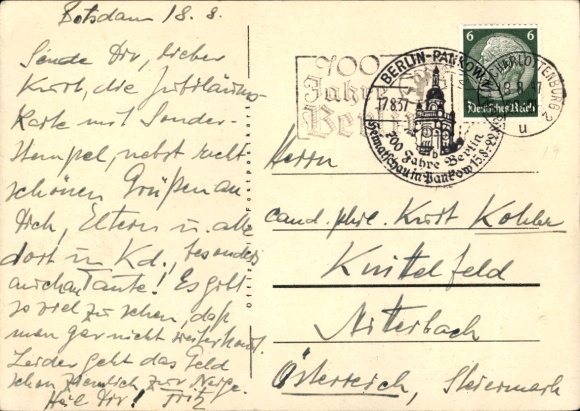 Potsdam 18. 8.
Sende Dir, lieber
Kurt, die Jubiläums-
Karte mit Sonder-
Stempel, nebst recht
schönen Grüßen an
Dich, Eltern u. alle
dort in Kd., besonders
auch an Tante! Es gibt
so viel zu sehen, daß
man gar nicht
Leider geht das Geld
schon ziemlich zur Neige.
Heil Dir! Fritz
Offizielle Festpostkarte
700
Jahre
Berlin
BERLIN-PANKOW
17.8.37
b
700 Jahre Berlin
Heimatschau in Pankow 15.8.-22.8.
6 6
Deutsches Reich
CHARLOTTENBURG 2
u
Herrn
cand. phil. Kurt Kohler
Knittelfeld
Österreich, Steiermark